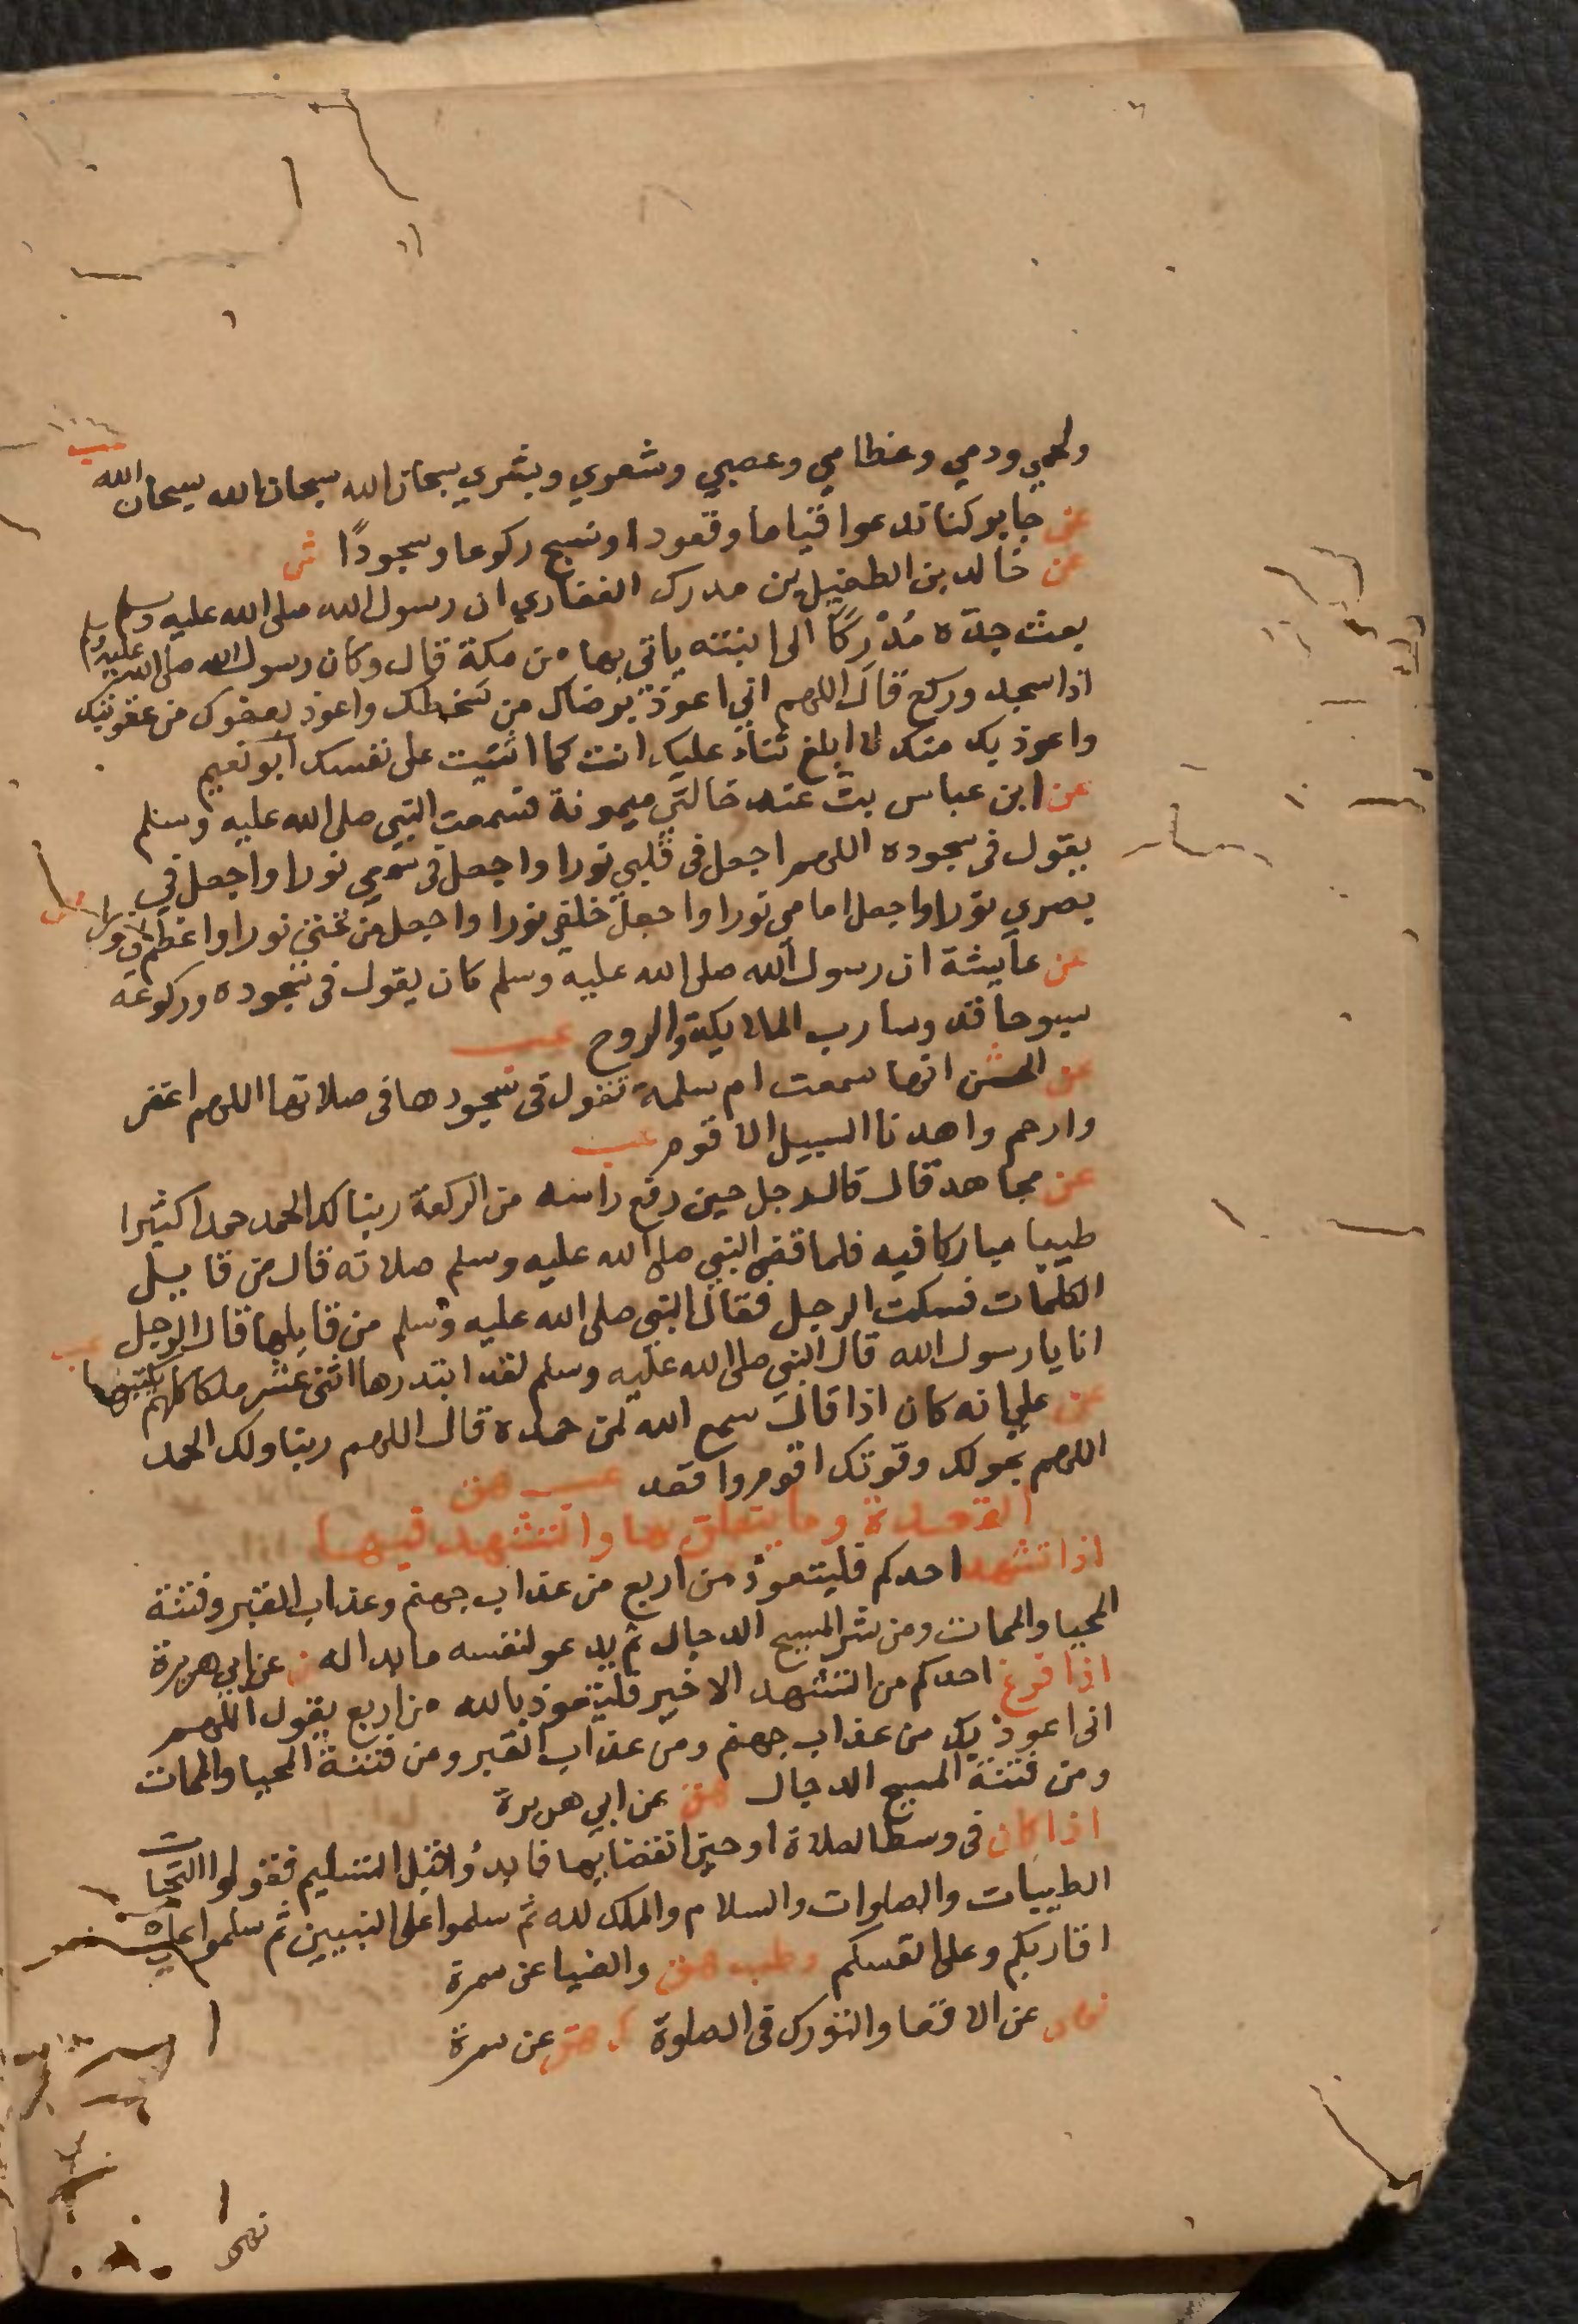 ولحمي ودمي وعظامي وعصبي وشعري وبشري سبحان الله سبحان الله سبحان الله عب
عن جابر كنا ندعوا قياما وقعودا ونسبح ركوعا وسجودًا ش
عن خالد بن الطفيل بن مدرك الغفاري ان رسول الله صلى الله عليه وسلم
بعث جدّه مُدْركًا الى ابنته ياتي بها من مكة قال وكان رسول الله صلى الله عليه وسلم
اذا سجد وركع قال اللهم اني اعوذ برضاك من سخطك واعوذ بعفوك من عقوبتك
واعوذ بك منك لا ابلغ ثناء عليك انت كما اثنيت على نفسك ابو نعيم
عن ابن عباس بت عند خالتي ميمونة فسمعت النبي صلى الله عليه وسلم
يقول في سجوده اللهم اجعل في قلبي نورا واجعل في سمعي نورا واجعل في
بصري نورا واجعل امامي نورا واجعل خلفي نورا واجعل من تحتي نورا واعظم لي نورا
عن عايشة ان رسول الله صلى الله عليه وسلم كان يقول في سجوده وركوعه
سبوحا قدوسا رب الملايكة والروح عب
عن الحسن انها سمعت ام سلمة تقول في سجودها في صلاتها اللهم اغفر
وارحم واهدنا السبيل الاقوم عب
عن مجاهد قال قال رجل حين رفع راسه من الركعة ربنا لك الحمد حمدا كثيرا
طيبا مباركا فيه فلما قضى النبي صلى الله عليه وسلم صلاته قال من قايل
الكلمات فسكت الرجل فقال النبي صلى الله عليه وسلم من قايلها قال الرجل
انا يا رسول الله قال النبي صلى الله عليه وسلم لقد ابتدرها اثنى عشر ملكا كلهم يكتبها عب
عن علي انه كان اذا قال سمع الله لمن حمده قال اللهم ربنا ولك الحمد
اللهم بحولك وقوتك اقوم واقعد عب هق
القعدة وما يتعلق بها والتشهد فيها
اذا تشهد احدكم فليتعوذ من اربع من عذاب جهنم وعذاب القبر وفتنة
المحيا والممات ومن شر المسيح الدجال ثم يدعو لنفسه ما بدا له ن عن ابي هريرة
اذا فرغ احدكم من التشهد الاخير فليتعوذ بالله من اربع يقول اللهم
اني اعوذ بك من عذاب جهنم ومن عذاب القبر ومن فتنة المحيا والممات
ومن فتنة المسيح الدجال هق عن ابي هريرة
اذا كان في وسط الصلاة او حين انقضايها فابدؤا قبل التسليم فقولوا التحيات
الطيبات والصلوات والسلام والملك لله ثم سلموا على النبيين ثم سلموا على
اقاربكم وعلى انفسكم د طب هق والضيا عن سمرة
نهى عن الاقعا والتورك في الصلوة ك هق عن سمرة
نهى